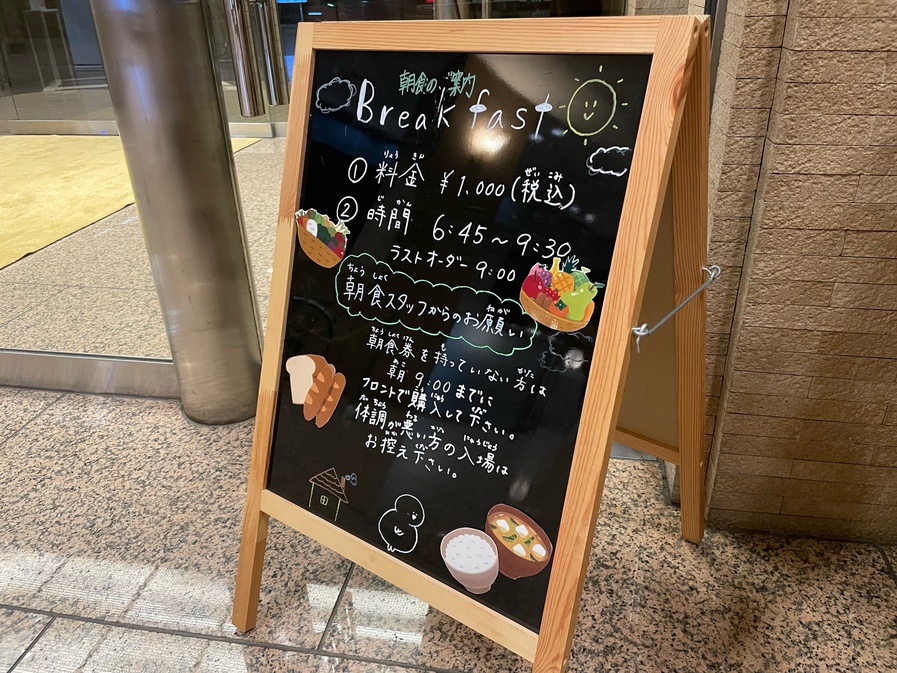 朝食のご案内
Breakfast
① 料金 ¥1.000(税込)
② 時間 6:45~9:30
ラストオーダー 9:00
朝食スタッフからのお願い
朝食券を持っていない方は
朝 9:00までに
フロントで購入して下さい。
体調が悪い方の入場は
お控え下さい。